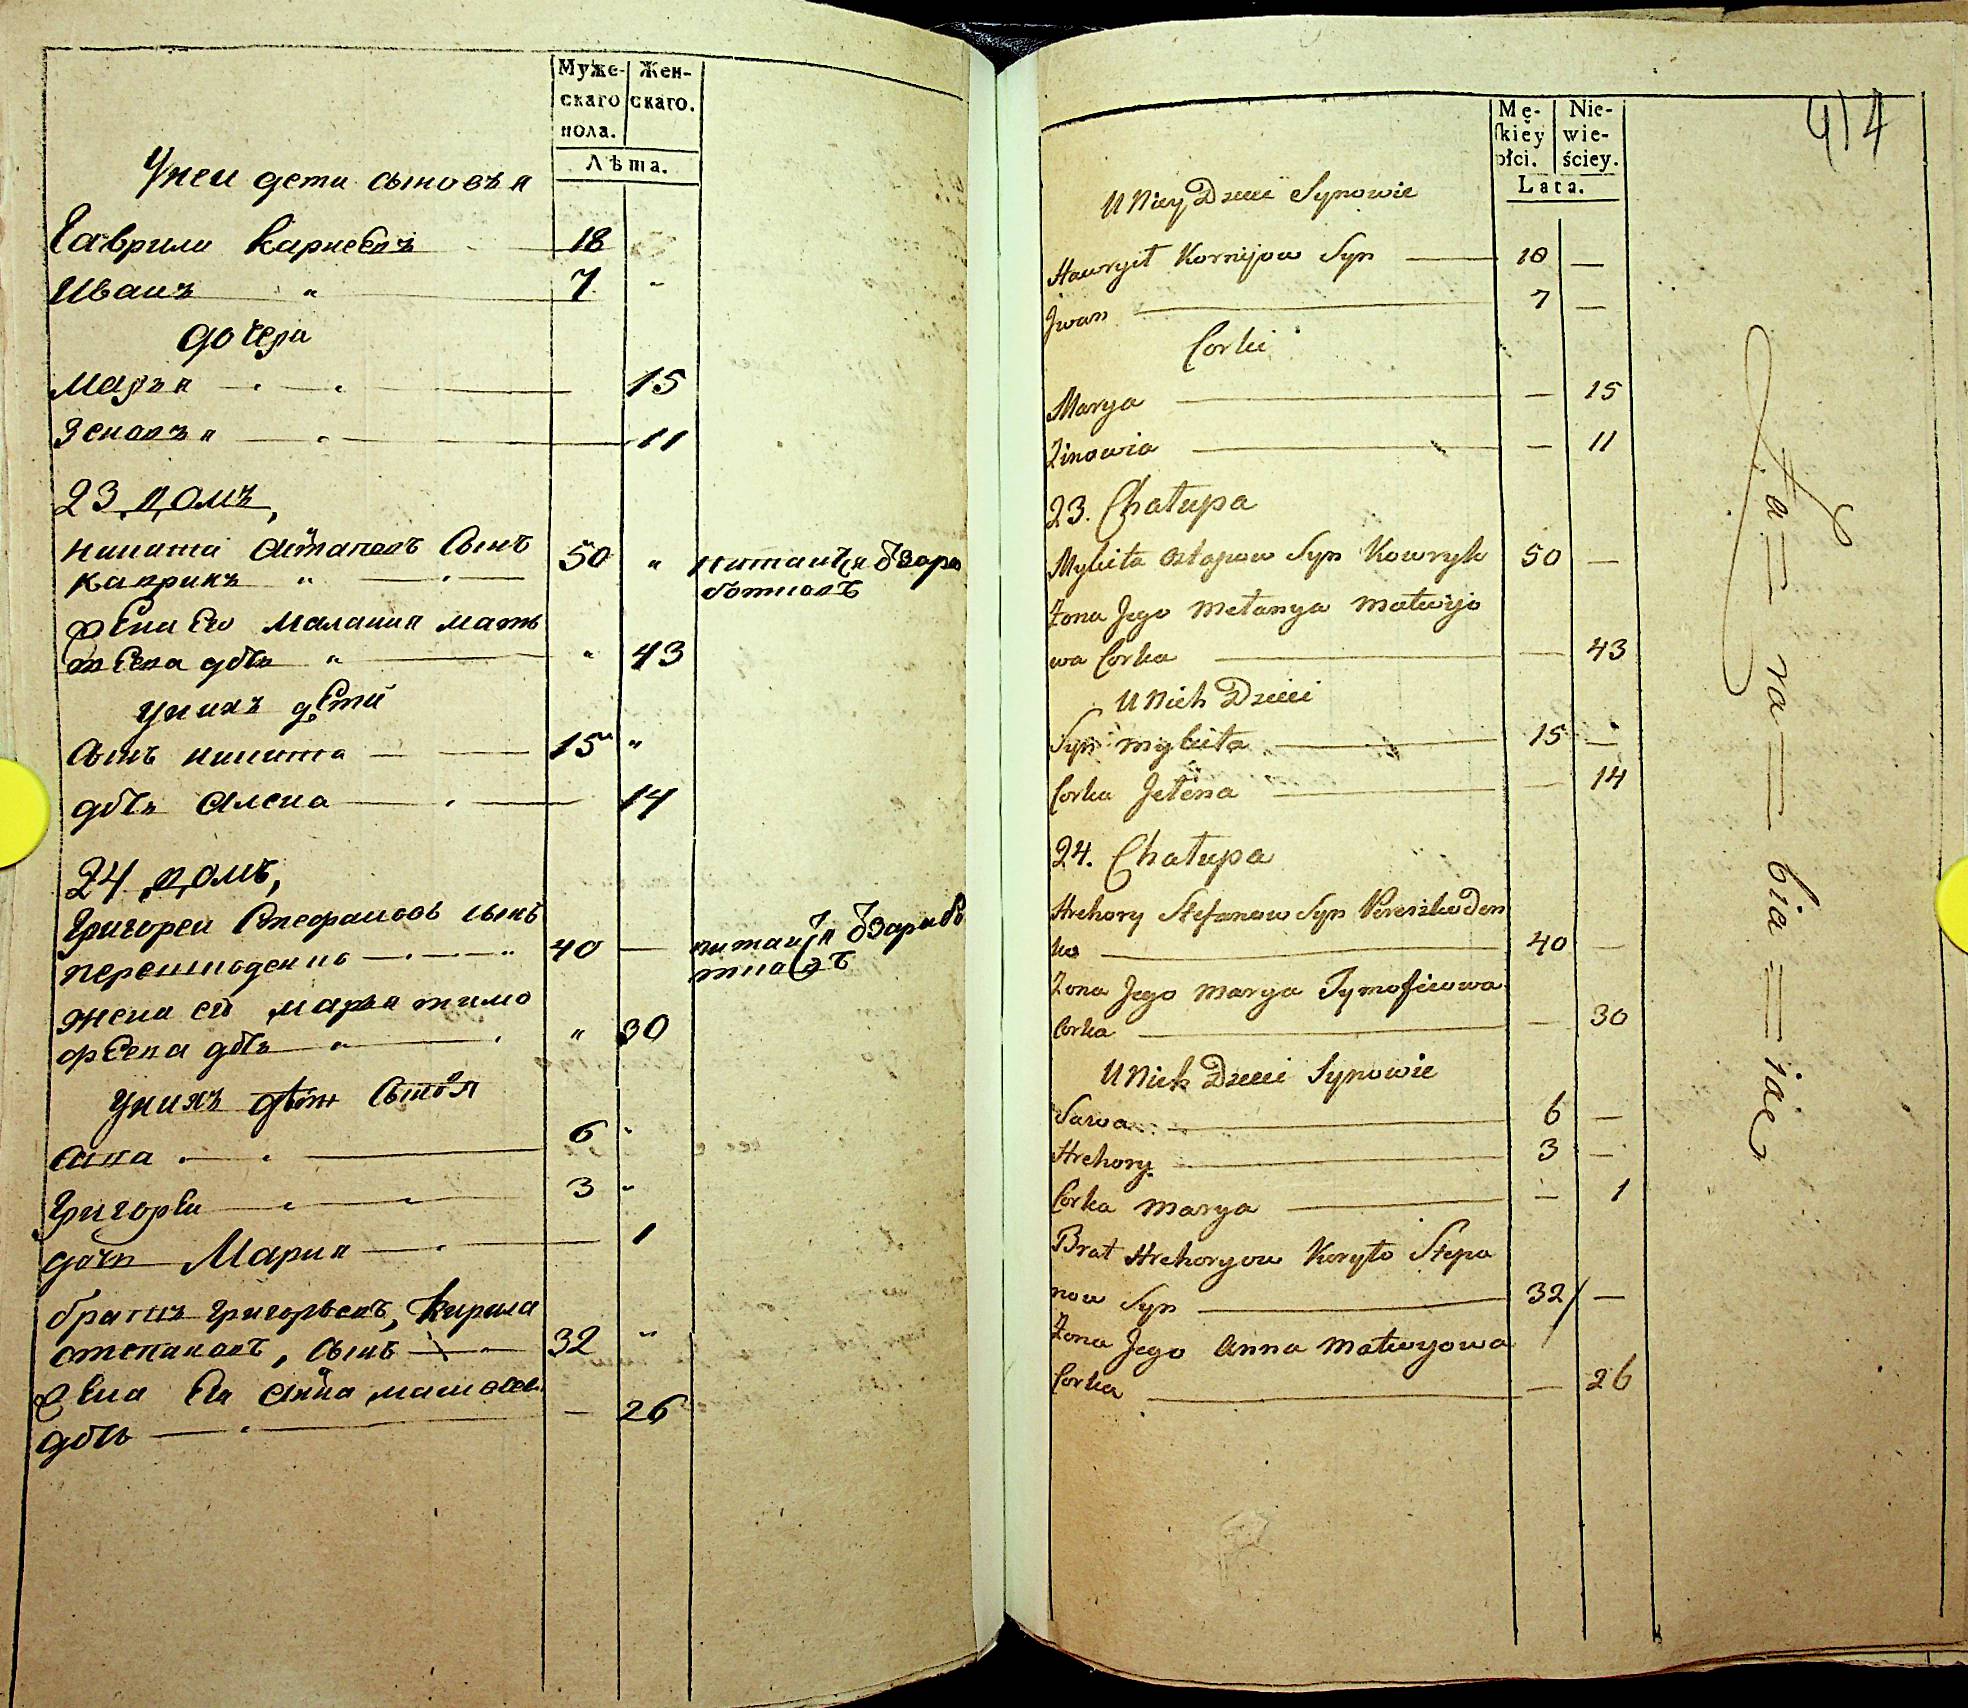 Муже- Жен-
скаго скаго.
пола.
Лѣта.
Унеи дети сыновъя
Гаврили Карнеевъ 18
Иванъ " 7 "
дочери
Маръя 15
Зеновъя 11
23 домъ,
Никита Астаповъ Сынъ
Кавринъ " 50 "
Жена Его Малания Матв
теева дочь " " 43
Унихъ дети
Сынъ никита 15 "
дочь Алена 14
24 домъ,
Григореи Стефановъ сынъ
переишоденко 40
жена его маръя тимо
феева дочь " " 30
Унихъ дети
6 "
Григореи 3 "
дочь Мария 1
братъ григорьевъ, Кирила
степановъ, сынъ 32 "
Жена Ево Анна матвеев.
дочь 26
414
Mę- Nie-
skiéy wie-
płci. ściey.
Lata.
U Niey Dzieci Synowie
Hawryił Kornijow Syn 18 —
Jwan 7 —
Corki
Marya — 15
Zinowia — 11
23. Chałupa
Mykita Ostapow Syn Kowryk 50 —
Żona Jego Mełanya Matwijo
wa Corka — 43
U Nich Dzieci
Syn Mykita 15 —
Corka Jełena — 14
24. Chałupa
Hrehory Stefanow Syn Pereszkoden
ko 40 —
Żona Jego Marya Tymofiiowa
Corka — 30
U Nich Dzieci Synowie
Sawa 6 —
Hrehory 3 —
Corka Marya — 1
Brat Hrehoryow Koryło Stepa
now Syn 32 —
Żona Jego Anna Matwyowa
Corka — 26
ta = ra = bia = iac